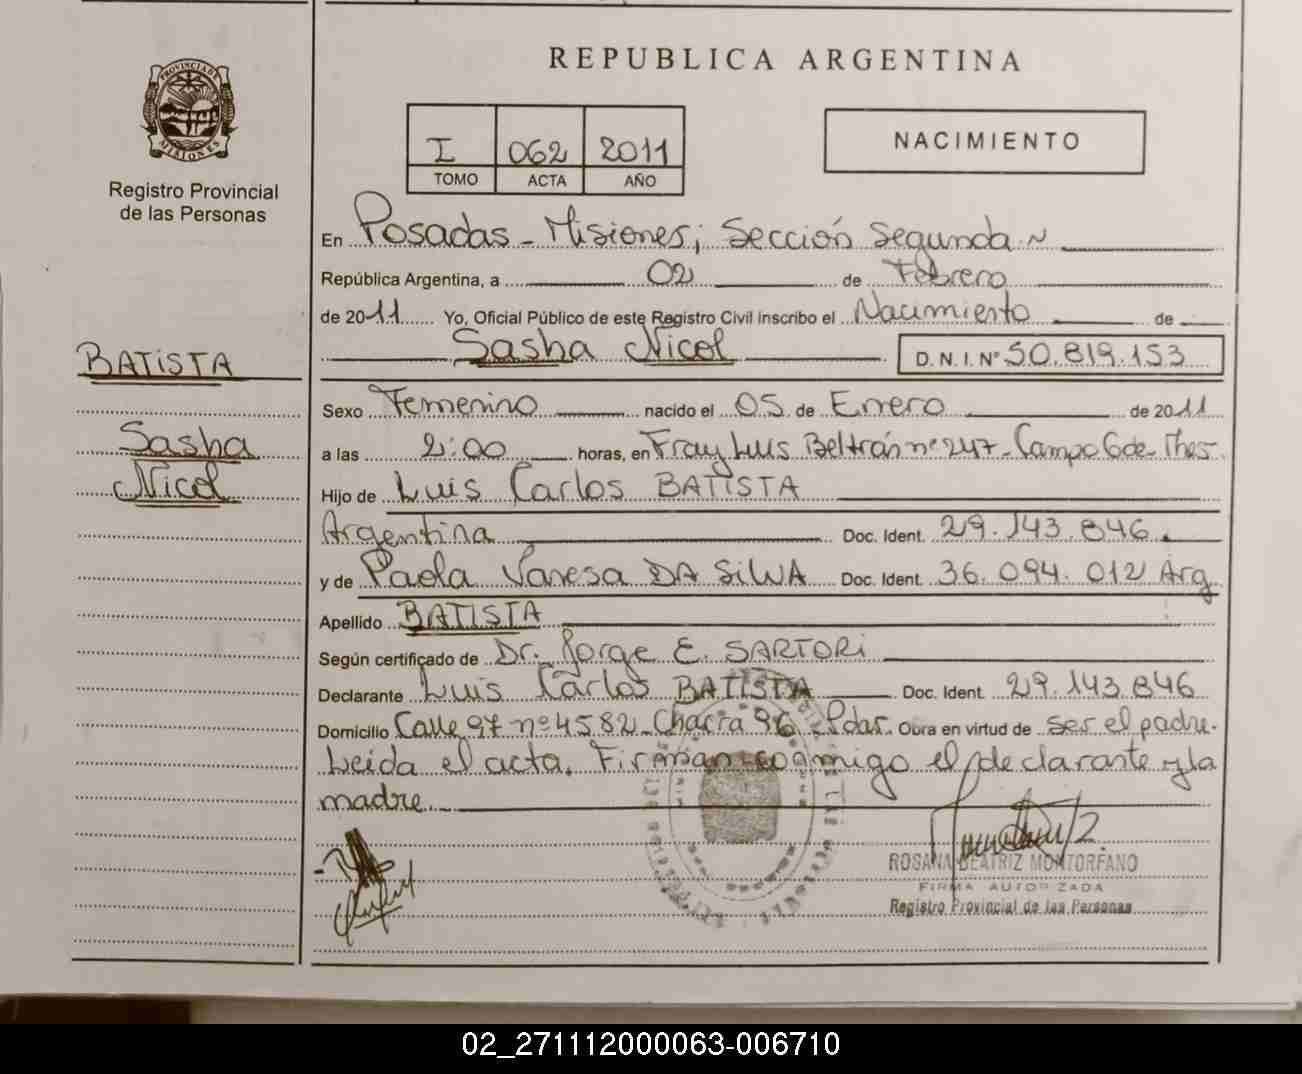 REPUBLICA ARGENTINA
PROVINCIA DE
MISIONES
Registro Provincial
de las Personas
I 062 2011
TOMO ACTA AÑO
NACIMIENTO
En Posadas - Misiones; Sección Segunda
República Argentina, a 02 de Febrero
de 2011 Yo, Oficial Público de este Registro Civil inscribo el Nacimiento de
Sasha Nicol D.N.I.Nº 50.819.153
BATISTA
Sasha
Nicol
Sexo Femenino nacido el 05 de Enero de 2011
a las 2:00 horas, en Fray Luis Beltrán nº 247 - Campo Gde - Mnes.
Hijo de Luis Carlos BATISTA
Argentina Doc. Ident. 29.143.846
y de Paola Vanesa DA SILVA Doc. Ident. 36.094.012 Arg
Apellido BATISTA
Según certificado de Dr. Jorge E. SARTORI
Declarante Luis Carlos BATISTA Doc. Ident. 29.143.846
Domicilio Calle 97 nº 4582 - Chacra 96 - Pdas. Obra en virtud de ser el padre.
Leida el acta. Firman conmigo el declarante y la
madre.
ROSANA BEATRIZ MONTORFANO
FIRMA AUTORIZADA
Registro Provincial de las Personas
02_271112000063-006710